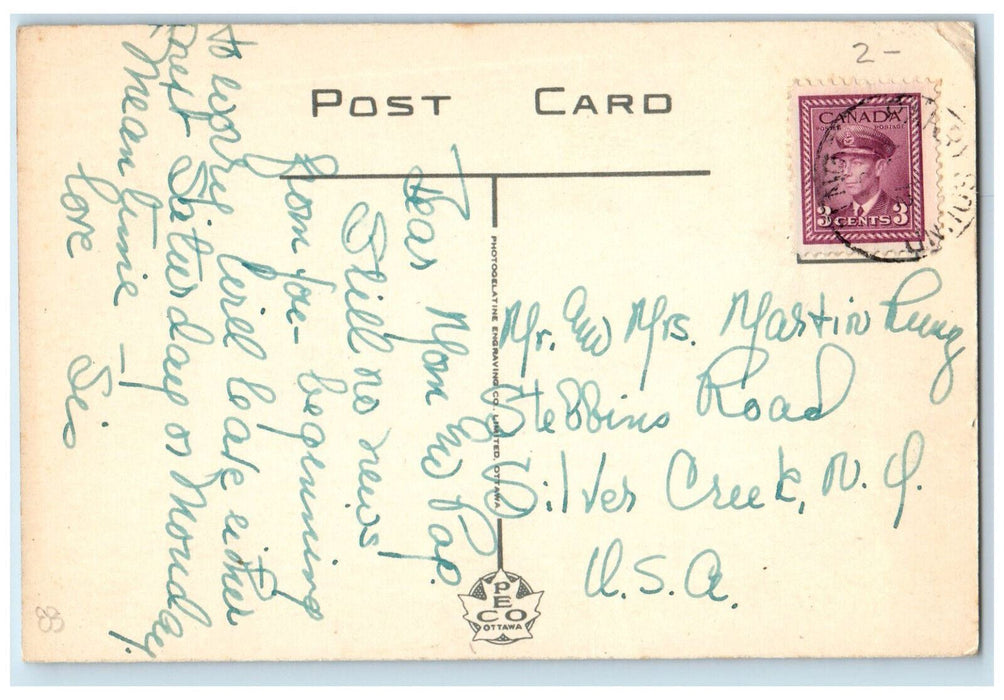 2-
POST CARD
CANADA
POSTES POSTAGE
3 CENTS 3
Dear Mom and Pop.
Still no news
from Joe - begenning
to worry will leave either
next Saturday or Monday.
Mean time -
love Sis
PHOTOGELATINE ENGRAVING CO. LIMITED, OTTAWA
Mr. and Mrs. Martin
Stebbins Road
Silver Creek, N.Y.
U.S.A.
PECO
OTTAWA
88